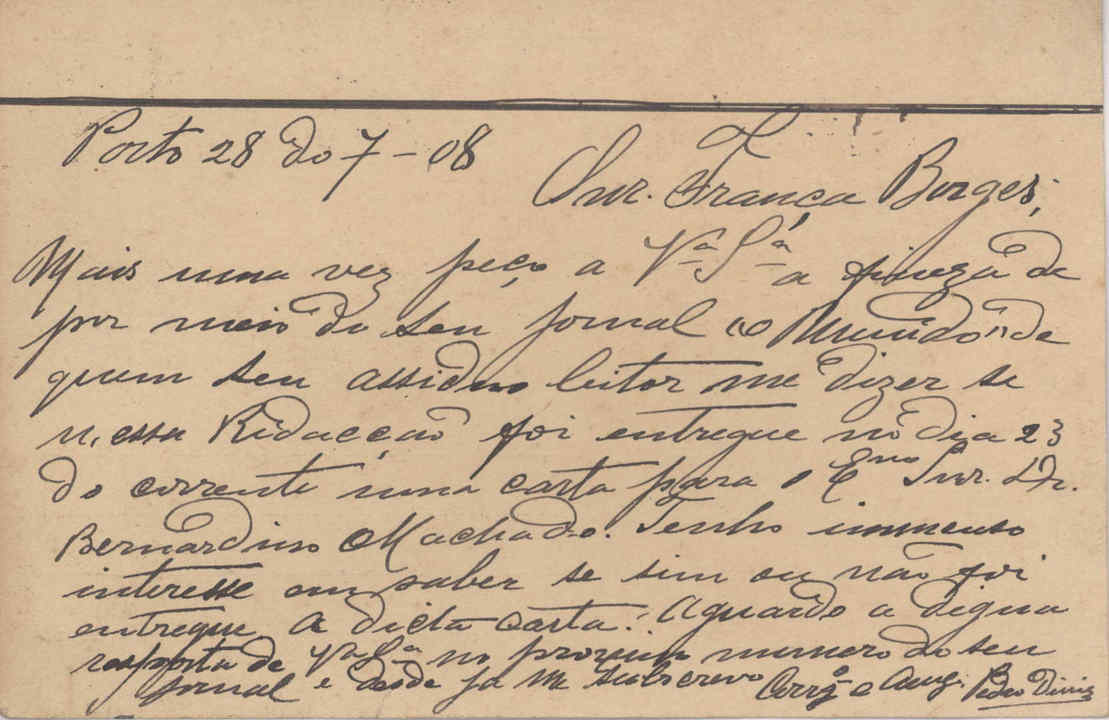 Porto 28 do 7-08
Snr. França Borges;
Mais uma vez peço a Vª Sª a fineza de
por meio do seu jornal "O Mundo" de
quem seu assiduo leitor me dizer se
n'essa Redacção foi entregue no dia 23
do corrente uma carta para o Exmo Snr. Dr.
Bernardino Machado. Tenho immenso
interesse em saber se sim ou não foi
entregue a dicta carta. Aguardo a digna
resposta de Vª Sª no proximo numero do seu
jornal e desde já me subscrevo Corrº e Amg. Pedro Diniz